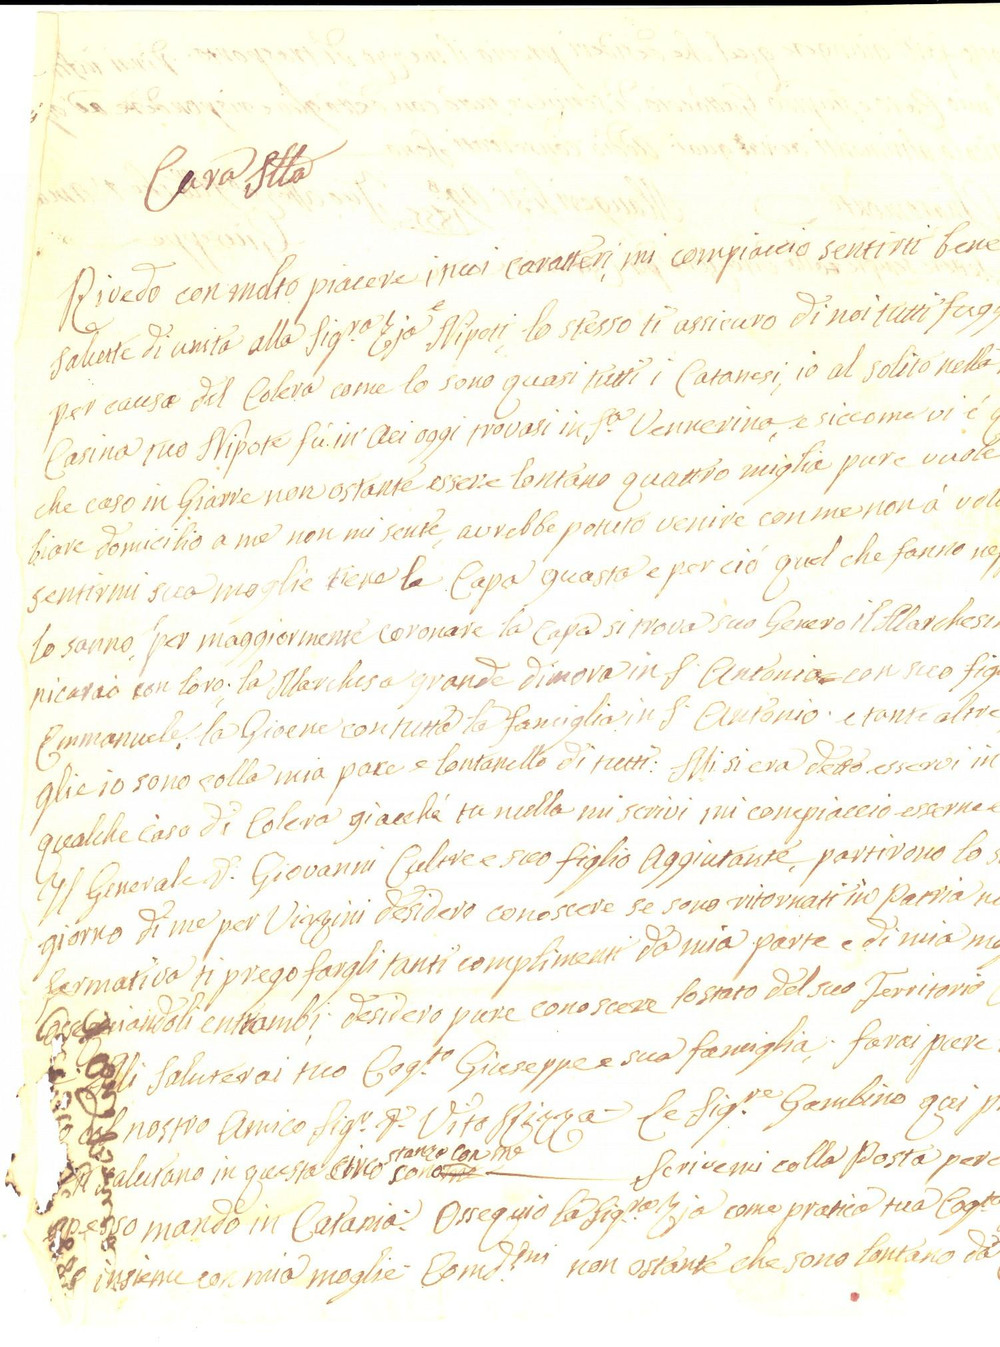 Cara
Rivedo con molto piacere i tuoi caratteri, mi compiaccio sentirti bene
salute di unita alla Sig.ra Zja e Nipoti, lo stesso ti assicuro di noi tutti
per causa del Colera come lo sono quasi tutti i Catanesi, io al solito nella
Casina tuo Nipote fù in Aci oggi trovasi in S.a Vennerina, e siccome vi é
che caso in Giarre non ostante essere lontano quattro miglia pure vuole
biare domicilio a me non mi sente, avrebbe potuto venire con me non á
sentirmi sua moglie tiene la Capa guasta e per ció quel che fanno
lo sanno, per maggiormente coronare la Capa si trova suo Genero il
con loro. la Marchesa grande dimora in S. Antonio con suo
Emmanuele, la Gioene con tutta la famiglia in S. Antonio. e tante altre
glie io sono colla mia pace e lontanello di tutti: Mi si era detto esservi in
qualche caso di Colera giacché tu nulla mi scrivi, mi compiaccio esserne
Il Generale D. Giovanni Cultre e suo figlio Aggiutante, partirono lo
giorno di me per Vizzini desidero conoscere se sono ritornati in Patria
fermativa ti prego fargli tanti complimenti da mia parte e di mia
entrambi, desidero pure conoscere lo stato del suo Territorio
Mi saluterai tuo Cog.to Giuseppe e sua famiglia. farai pure
al nostro Amico Sig.r D. Vito Rizza = le Sig.re Gambino qui
salutano in questa stanzo con me Scrivemi colla Posta
spesso mando in Catania. Ossequio la Sig.ra Zja come pratica tua Cog.ta
insieme con mia moglie. non ostante che sono lontano da